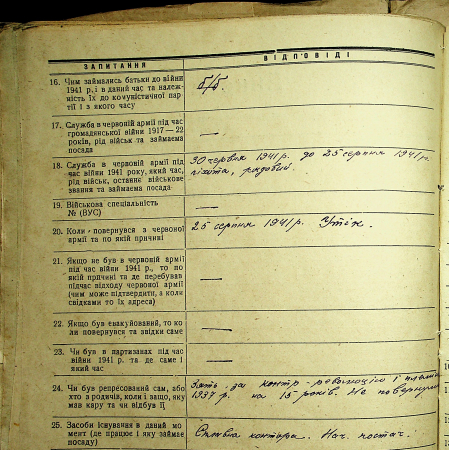 ЗАПИТАННЯ
ВІДПОВІДІ
16. Чим займались батьки до війни
1941 р. і в даний час та належ-
ність їх до комуністичної пар-
тії і з якого часу
б/б.
17. Служба в червоній армії під час
громадянської війни 1917—22
років, рід військ та займаема
посада
—
18. Служба в червоній армії під
час війни 1941 року, який час,
рід військ, останнє військове
звання та займаема посада
30 червня 1941 р. до 25 серпня 1941 р.
піхота, рядовий.
19. Військова спеціальність
№ (ВУС)
—
20. Коли повернувся з червоної
армії та по якій причині
25 серпня 1941 р. Утік.
21. Якщо не був в червоній армії
під час війни 1941 р., то по
якій причині та де перебував
підчас відходу червоної армії
(чим може підтвердити, а коли
свідками то їх адреса)
—
22. Якщо був евакуйований, то ко-
ли повернувся та звідки саме
—
23. Чи був в партизанах під час
війни 1941 р. та де саме і
який час
—
24. Чи був репресований сам, або
хто з родичів, коли і защо, яку
мав кару та чи відбув її
Зять за контр-революцію і
1937 р. на 15 років. Не повернувся
25. Засоби існування в даний мо-
мент (де працює і яку займає
посаду)
контора. Нач. постач.